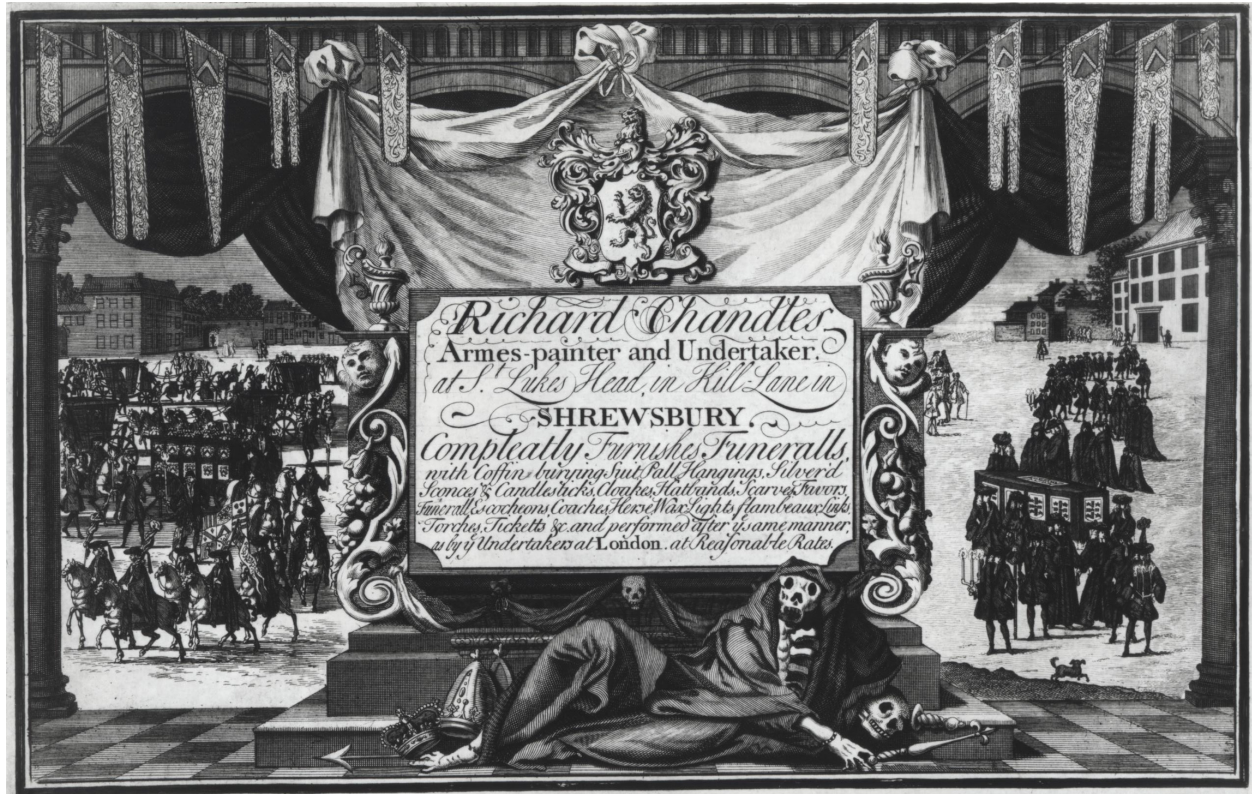 Richard Chandles
Armes-painter and Undertaker.
at S.t Lukes Head, in Kill-Lane in
SHREWSBURY.
Compleatly Furnishes Funeralls,
with Coffin burying Suit Pall Hangings, Silver'd
Sconces & Candlesticks, Cloakes, Hatbands, Scarves, Favors,
Funerall Escocheons, Coaches, Herse, Wax Lights, flambeaux, Links,
Torches, Ticketts &c. and performed after ye same manner,
as by ye Undertakers at London. at Reasonable Rates.